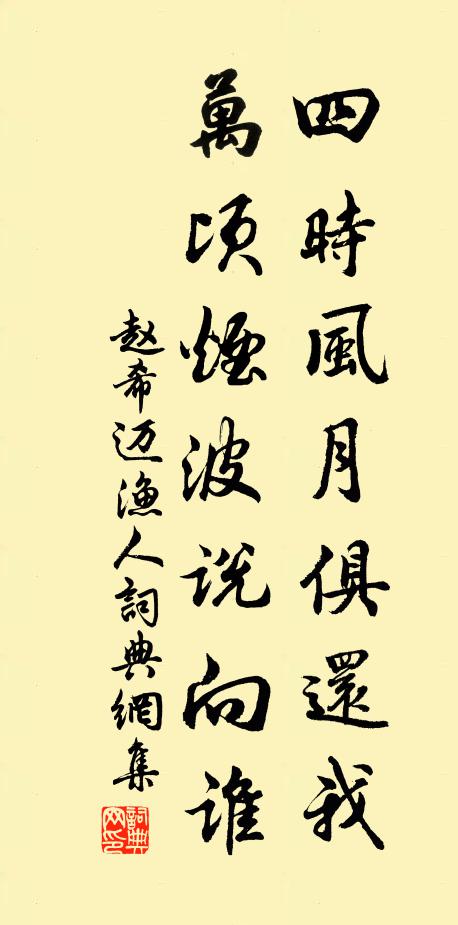 四時風月俱還我
萬頃煙波説向誰
赵希迈漁人詞典網集
詞典網印